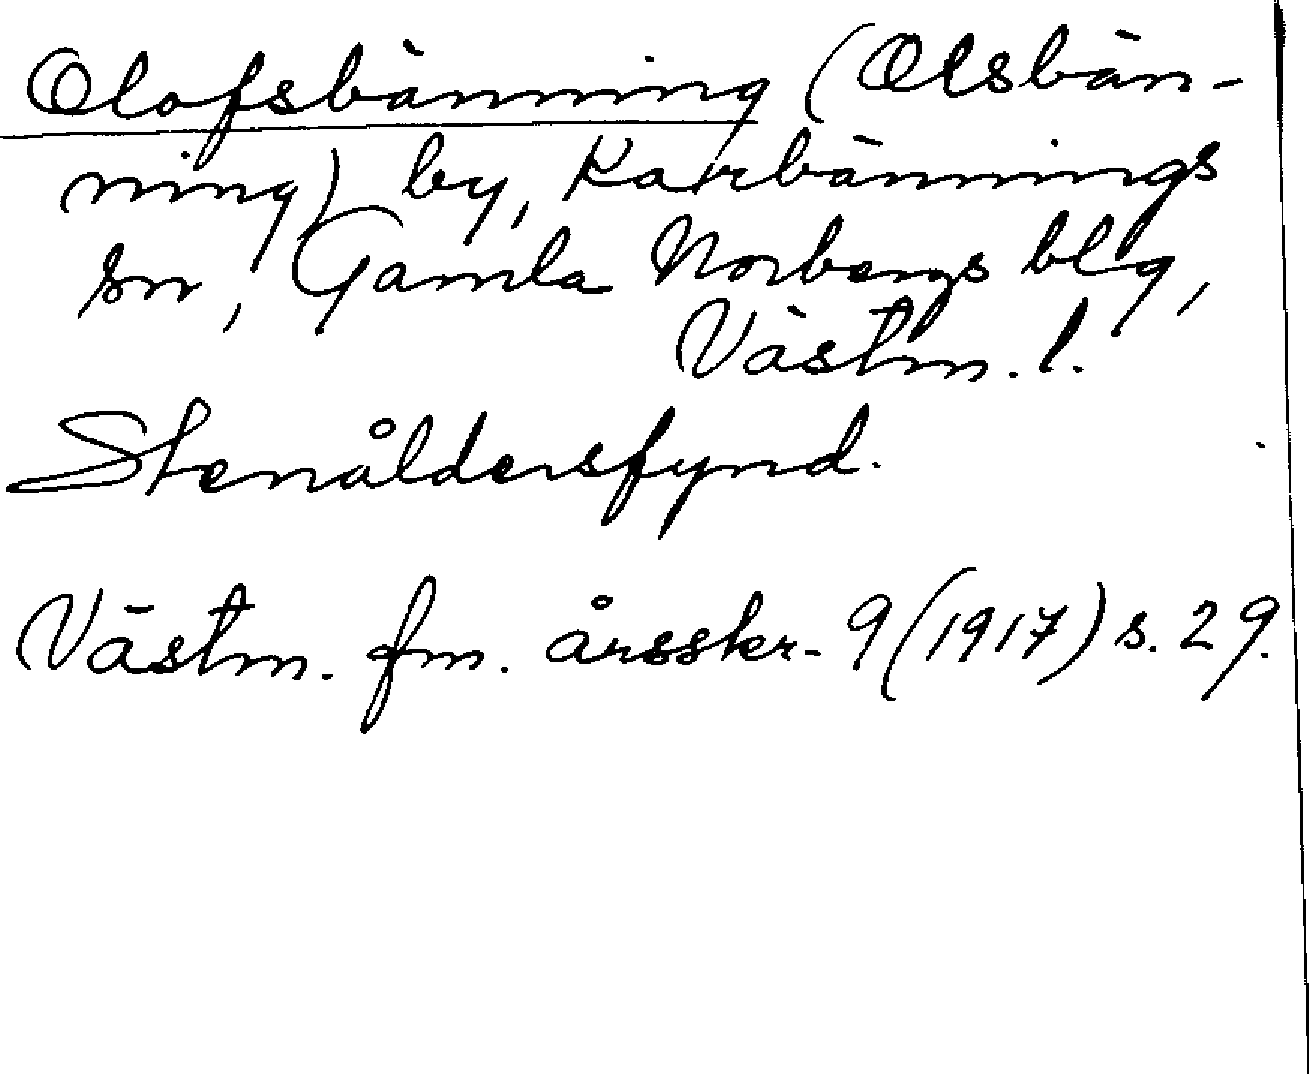 Olofsbänning (Olsbän-
ning) by, Karbännings
sn, Gamla Norbergs blg,
Västm. l.
Stenåldersfynd.
Västm. fm. årsskr. 9 (1917) s. 29.